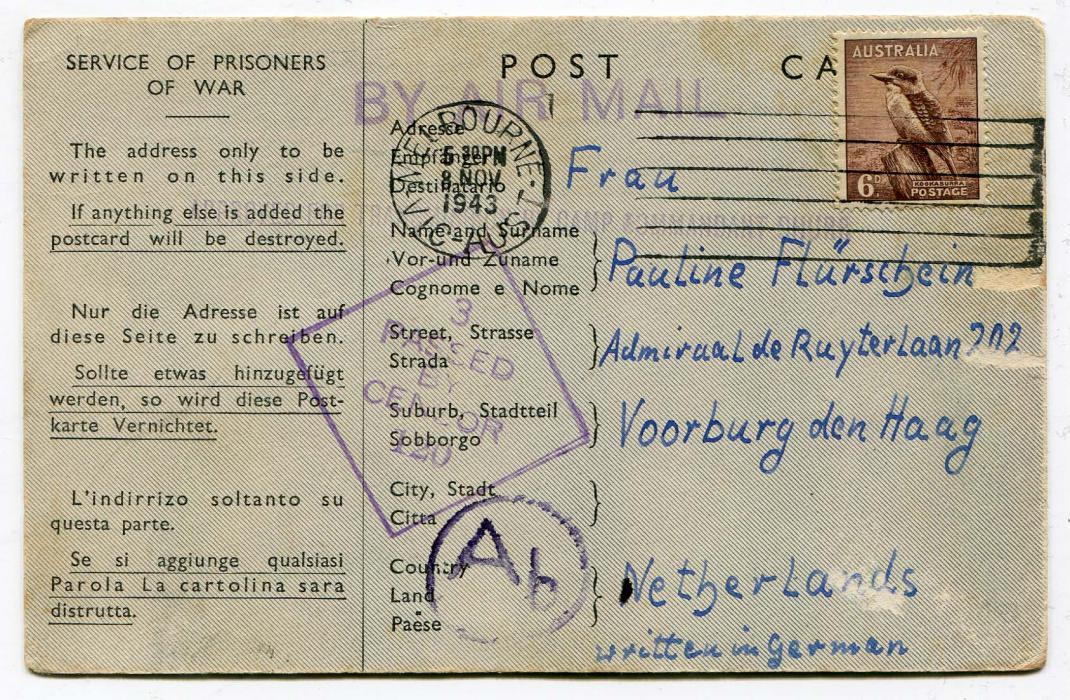 SERVICE OF PRISONERS
OF WAR
The address only to be
written on this side.
If anything else is added the
postcard will be destroyed.
Nur die Adresse ist auf
diese Seite zu schreiben.
Sollte etwas hinzugefügt
werden, so wird diese Post-
karte Vernichtet.
L'indirrizo soltanto su
questa parte.
Se si aggiunge qualsiasi
Parola La cartolina sara
distrutta.
POST CA
BY AIR MAIL
AUSTRALIA
6D
KOOKABURRA
POSTAGE
MELBOURNE
5 30PM
8 NOV
1943
VIC-AUST
Adresse
Empfänger
Destinatario
Frau
CAMP COMMANDANT
Name and Surname
Vor-und Zuname
Cognome e Nome
Pauline Flürscheim
Street, Strasse
Strada
Admiraal de Ruyterlaan 202
Suburb, Stadtteil
Sobborgo
Voorburg den Haag
City, Stadt
Citta
Country
Land
Paese
Netherlands
written in German
3
PASSED
BY
CENSOR
120
Ab